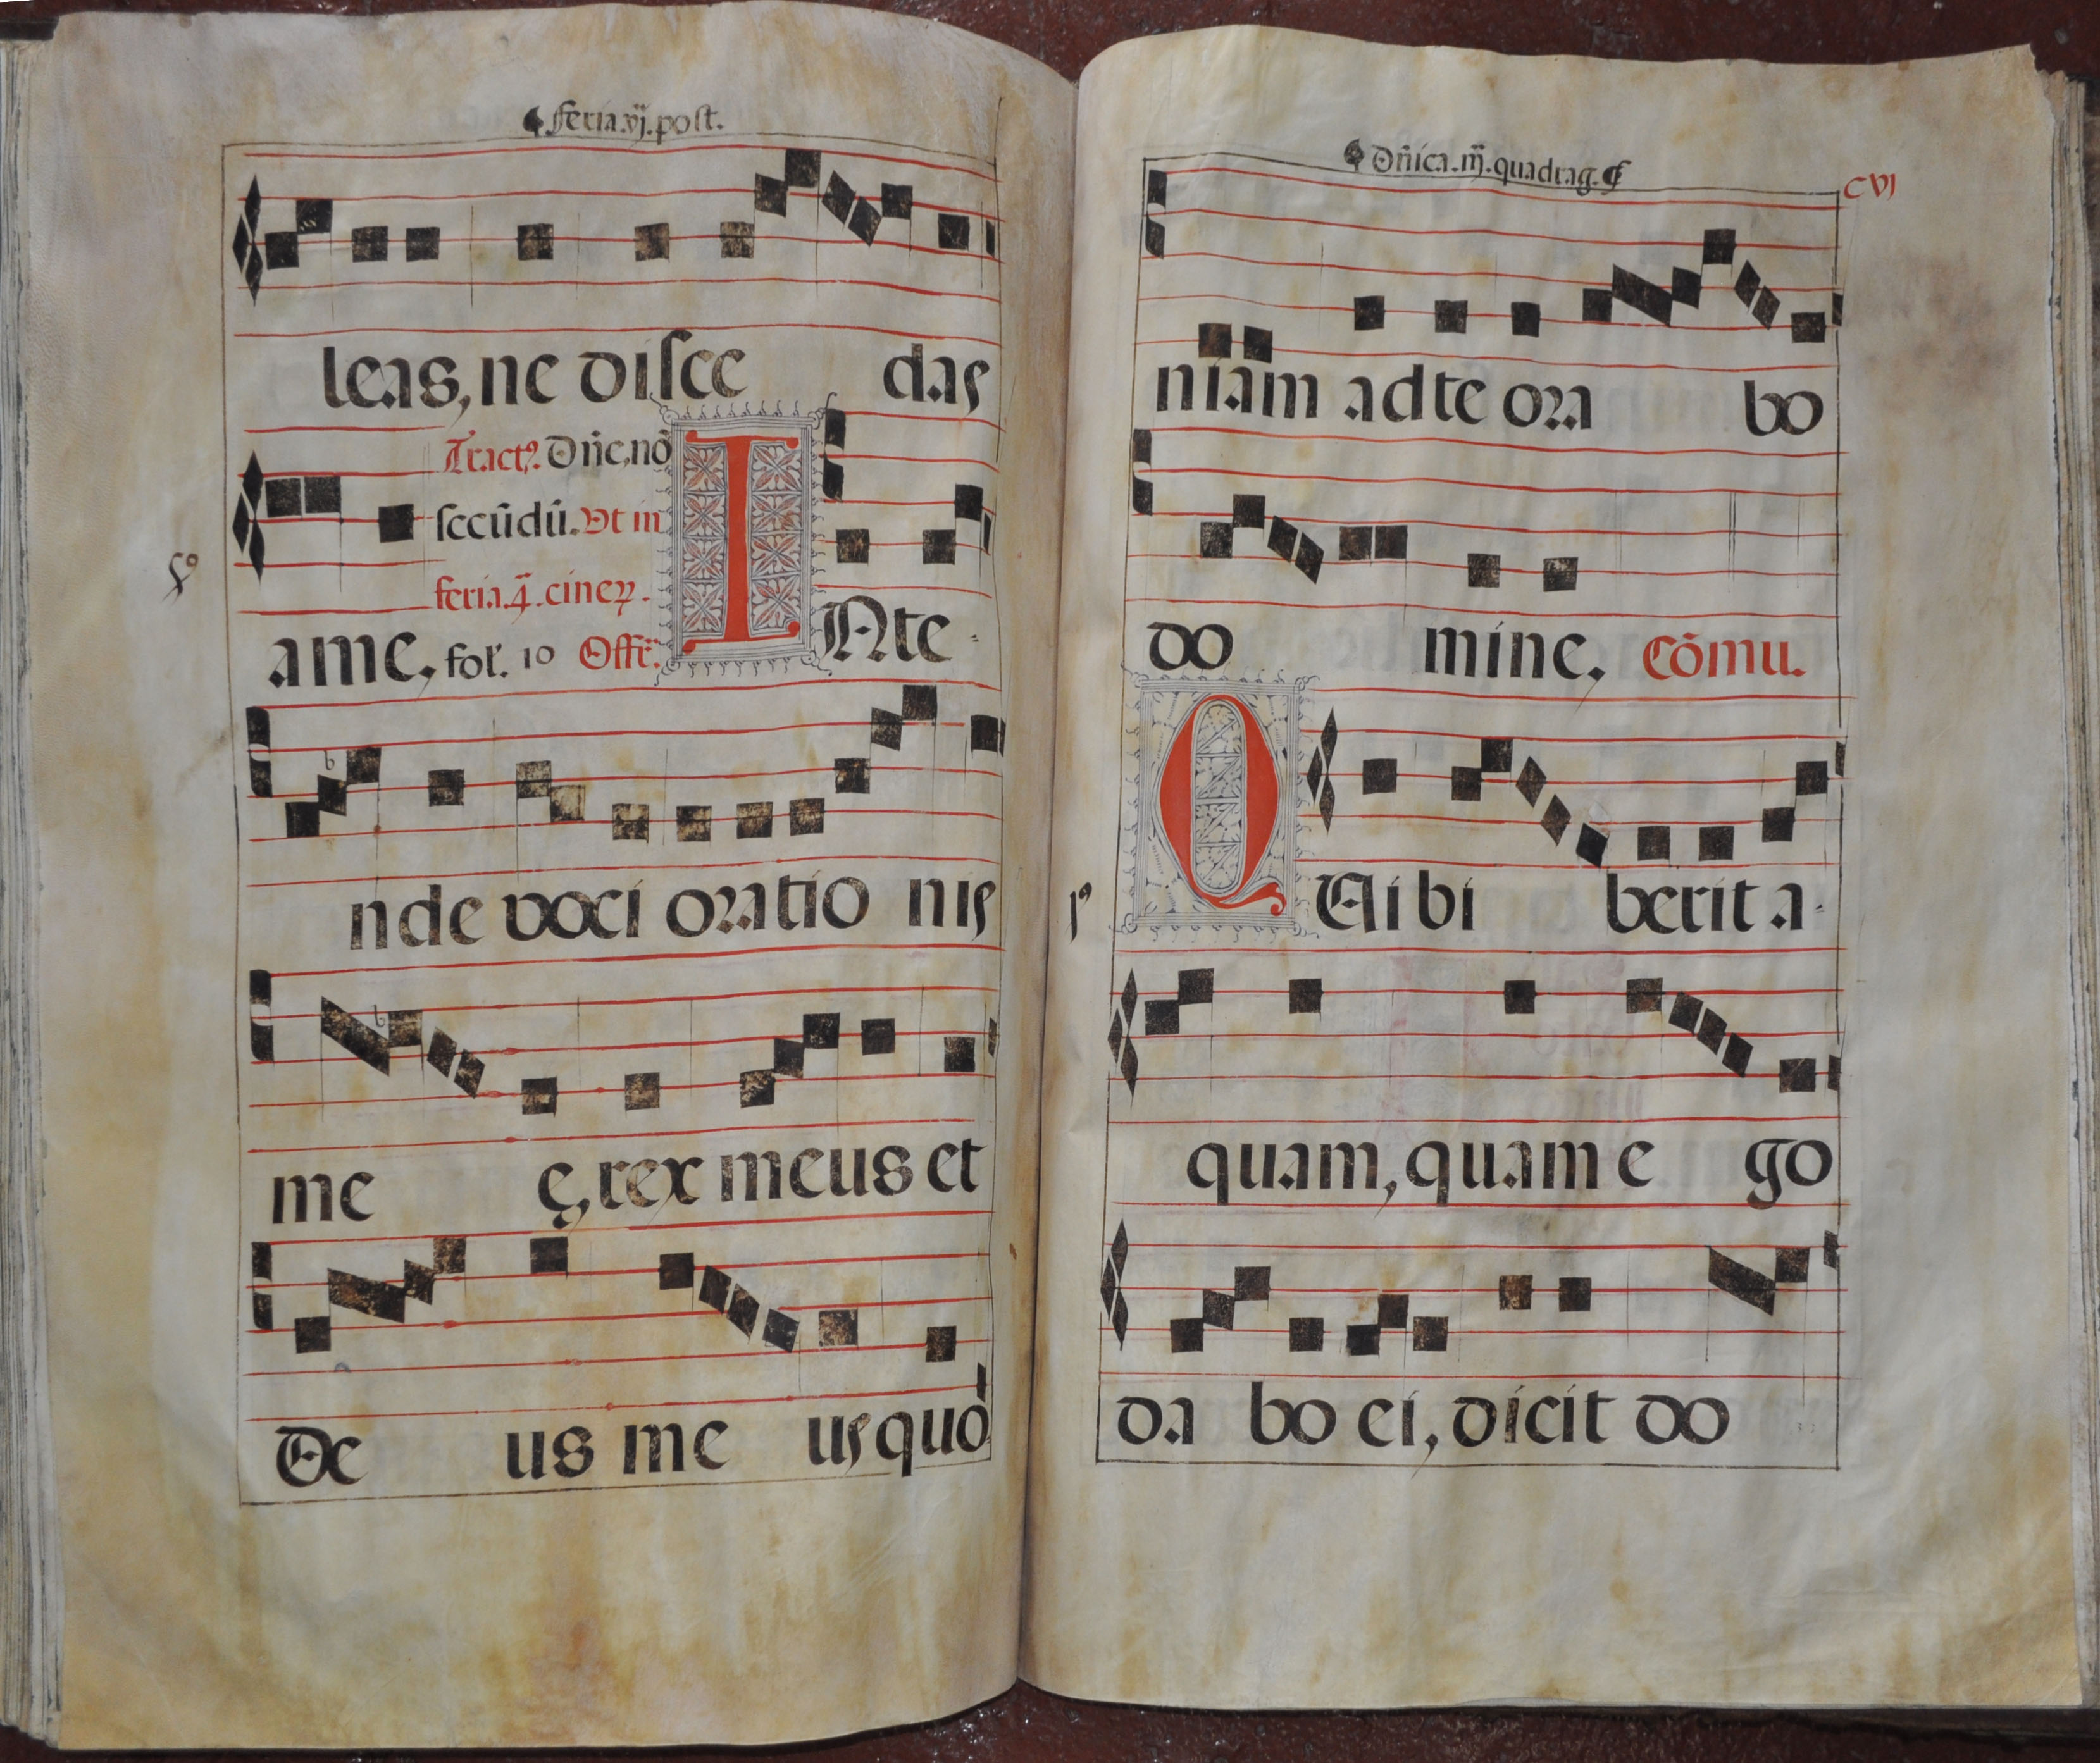 feria.vj.post.
leas, ne disce das
Tract⁹. Dñe, nõ
secũdũ. Ut in
feria.4. cineꝝ.
a me, fol. 10 Offr̃.
INte-
nde voci oratio nis
me ę, rex meus et
De us me us quo
Dñica.iij.quadrag.
CVI
niam ad te ora bo
do mine. Cõmu.
QUi bi berit a-
quam, quam e go
da bo ei, dicit do